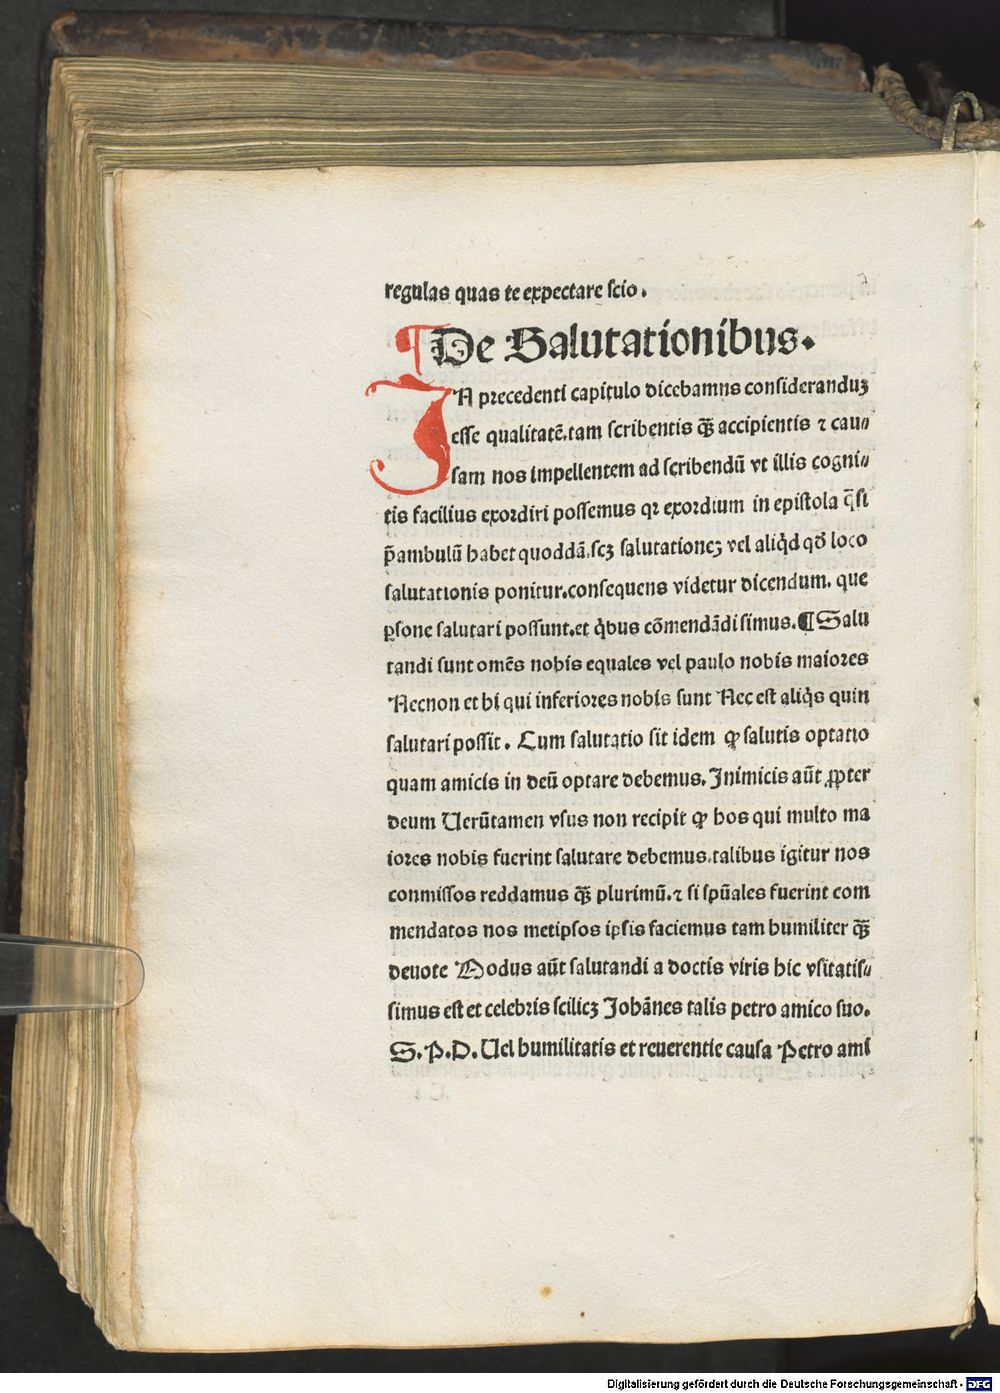 regulas quas te expectare scio.
¶ De Salutationibus.
IN precedenti capitulo dicebamus consideranduꝫ
esse qualitatē.tam scribentis q̄ꝫ accipientis ⁊ cau⸗
sam nos impellentem ad scribendū vt illis cogni⸗
tis facilius exordiri possemus qꝛ exordium in epistola q̄si
p̄ambulū habet quoddā.scꝫ salutationeꝫ vel aliq̇d qđ loco
salutationis ponitur.consequens videtur dicendum. que
ꝑsone salutari possunt.et q̇bus cōmendādi simus.¶ Salu
tandi sunt omēs nobis equales vel paulo nobis maiores
Necnon et hi qui inferiores nobis sunt Nec est aliq̇s quin
salutari possit. Cum salutatio sit idem ꝙ salutis optatio
quam amicis in deū optare debemus. Inimicis aūt ꝓpter
deum Uerūtamen vsus non recipit ꝙ hos qui multo ma
iores nobis fuerint salutare debemus.talibus igitur nos
conmissos reddamus q̄ꝫ plurimū.⁊ si spūales fuerint com
mendatos nos metipsos ipsis faciemus tam humiliter q̄ꝫ
deuote Modus aūt salutandi a doctis viris hic vsitatis⸗
simus est et celebris scilicꝫ Johānes talis petro amico suo.
S.P.D. Uel humilitatis et reuerentie causa Petro ami
Digitalisierung gefördert durch die Deutsche Forschungsgemeinschaft - DFG